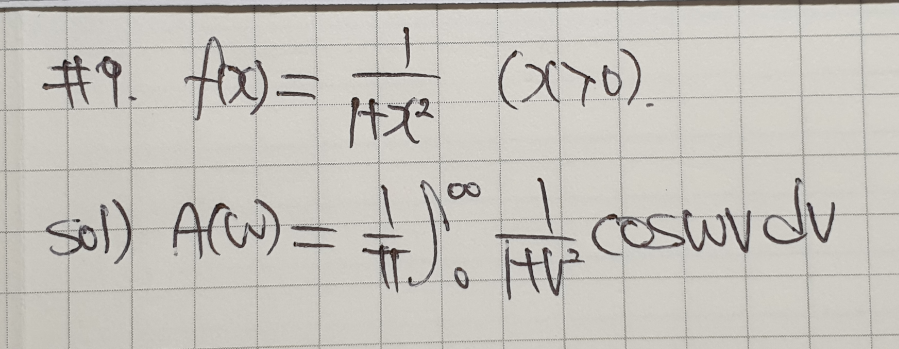 #9. f(x) = 1/(1+x²) (x>0).
sol) A(w) = 1/π ∫₀^∞ 1/(1+v²) cos wv dv